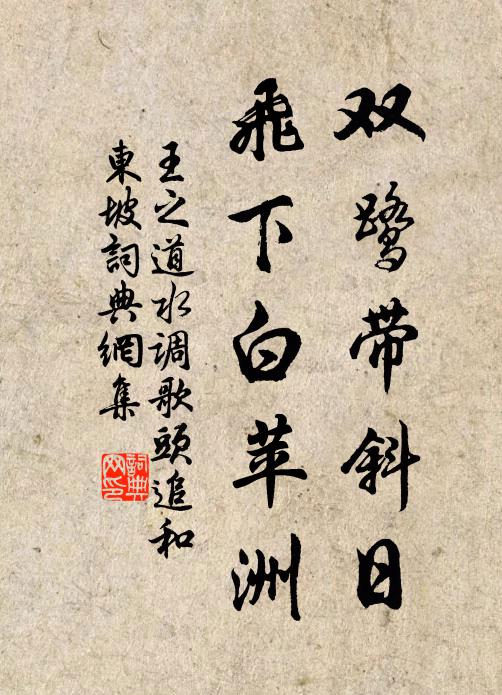 双鹭带斜日
飞下白苹洲
王之道水调歌頭追和
東坡詞典網集
詞典網印